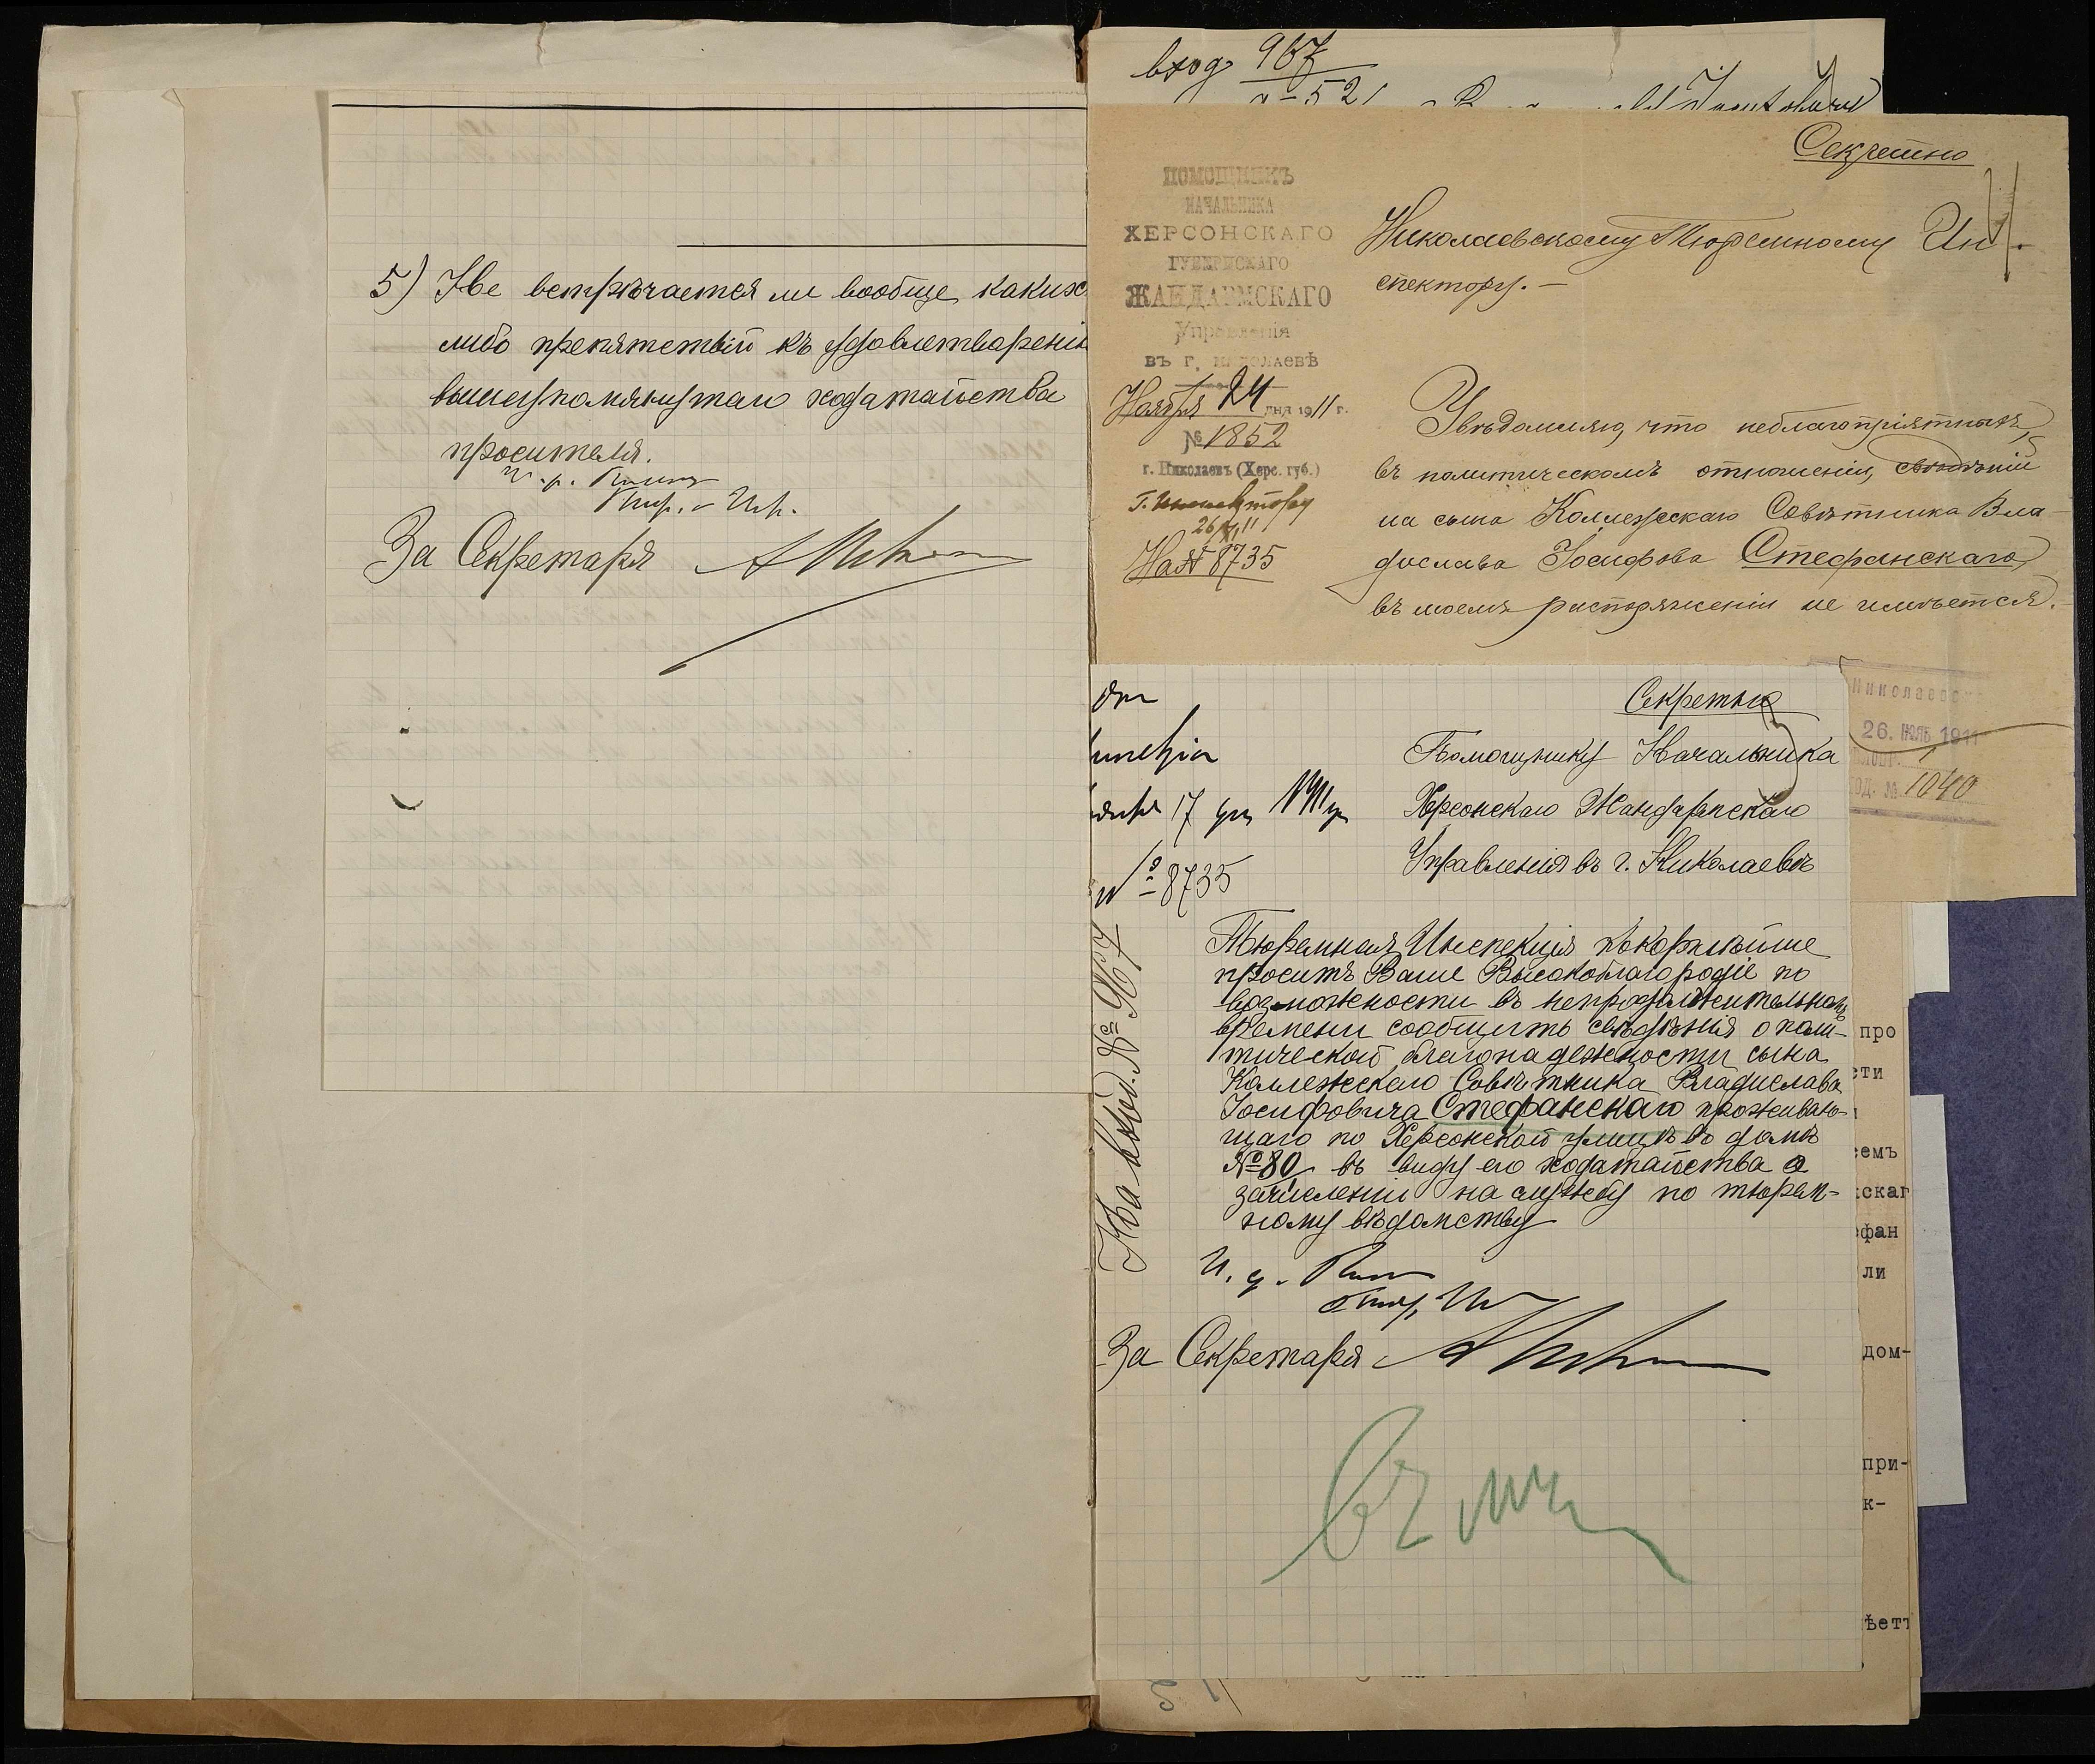 5) Не встрѣчается ли вообще какихъ
либо препятствій къ удовлетворенію
вышеупомянутаго ходатайства
просителя.
За Секретаря
вход 967
Секретно
ПОМОЩНИКЪ
НАЧАЛЬНИКА
ХЕРСОНСКАГО
ГУБЕРНСКАГО
ЖАНДАРМСКАГО
Управленія
въ г. Николаевѣ
Ноября 24 дня 1911 г.
№ 1852
г. Николаевъ (Херс. губ.)
Г. Инспектору
26/XI 11
На № 8735
Николаевскому Тюремному Ин
спектору. —
Увѣдомляю, что неблагопріятныхъ,
въ политическомъ отношеніи, свѣдѣній
на сына Коллежскаго Совѣтника Вла-
дислава Іосифова Стефанскаго,
въ моемъ распоряженіи не имѣется.
Николаевск
26. НОЯБ 1911
1040
Секретно
Помощнику Начальника
Херсонскаго Жандармскаго
Управленія въ г. Николаевѣ
17 дня 1911 г.
№ 8735
На вход. № 967
Тюремная Инспекція покорнѣйше
проситъ Ваше Высокоблагородіе по
возможности въ непродолжительномъ
времени сообщить свѣдѣнія о поли-
тической благонадежности сына
Коллежскаго Совѣтника Владислава
Іосифовича Стефанскаго проживаю-
щаго по Херсонской улицѣ въ домѣ
№ 80 въ виду его ходатайства о
зачисленіи на службу по тюрем-
ному вѣдомству
И. д.
За Секретаря
про
сти
емъ
скаг
фан
ли
дом-
при-
к-
ѣетъ